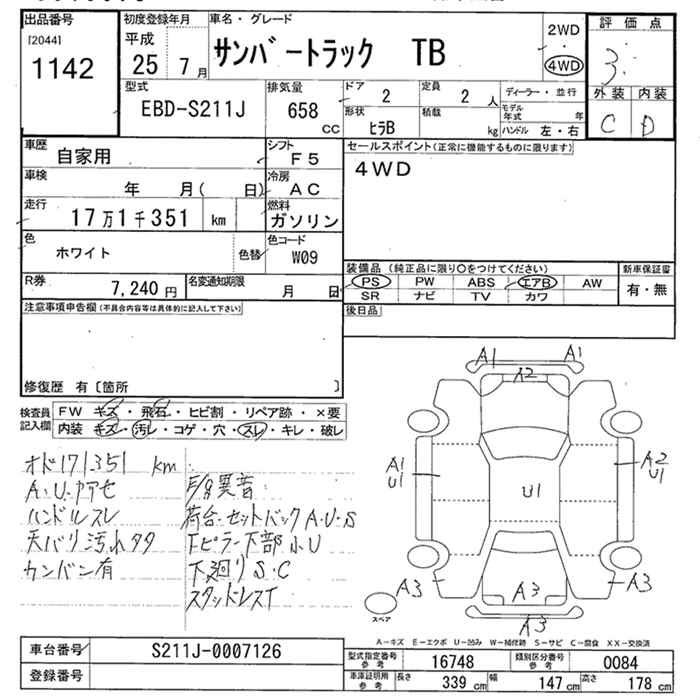 出品番号
[2044]
1142
初度登録年月
平成
25 7月
車名・グレード
サンバートラック TB
2WD
4WD
評価点
3
外装 内装
C D
型式
EBD-S211J
排気量
658
cc
ドア 2
定員 2 人
形状 ヒラB
積載 kg
ディーラー・並行
モデル年式 年
ハンドル 左・右
車歴
自家用
シフト
F5
車検
年 月( 日)
冷房
AC
走行
17万1千351 km
燃料
ガソリン
色
ホワイト
色替
色コード
W09
R券
7,240円
名変適切期限
月 日
セールスポイント(正常に機能するものに限ります)
4WD
装備品 (純正品に限り○をつけてください)
PS PW ABS エアB AW
SR ナビ TV カワ
新車保証書
有・無
後日品
注意事項申告欄(不具合内容等は具体的に記入して下さい)
修復歴 有〔箇所 〕
検査員記入欄
FW キズ・飛石・ヒビ割・リペア跡・×要
内装 キズ・汚レ・コゲ・穴・スレ・キレ・破レ
オド171351 km
A・U・ヤケセ
ハンドルスレ
天バリ汚れタタ
カンバン有
F/g異音
荷台・セットバックA・U・S
Fピラー下部小U
下廻りS・C
スタッドレスT
A1 A1
A2
A1
U1
U1
A2
U1
A3
A3
A3
A3
スペア
A-キズ E-エクボ U-凹み W-補修跡 S-サビ C-腐食 XX-交換済
車台番号
S211J-0007126
登録番号
型式指定番号
参考
16748
類別区分番号
参考
0084
車庫証明用
参考
長さ 339cm
幅 147cm
高さ 178cm